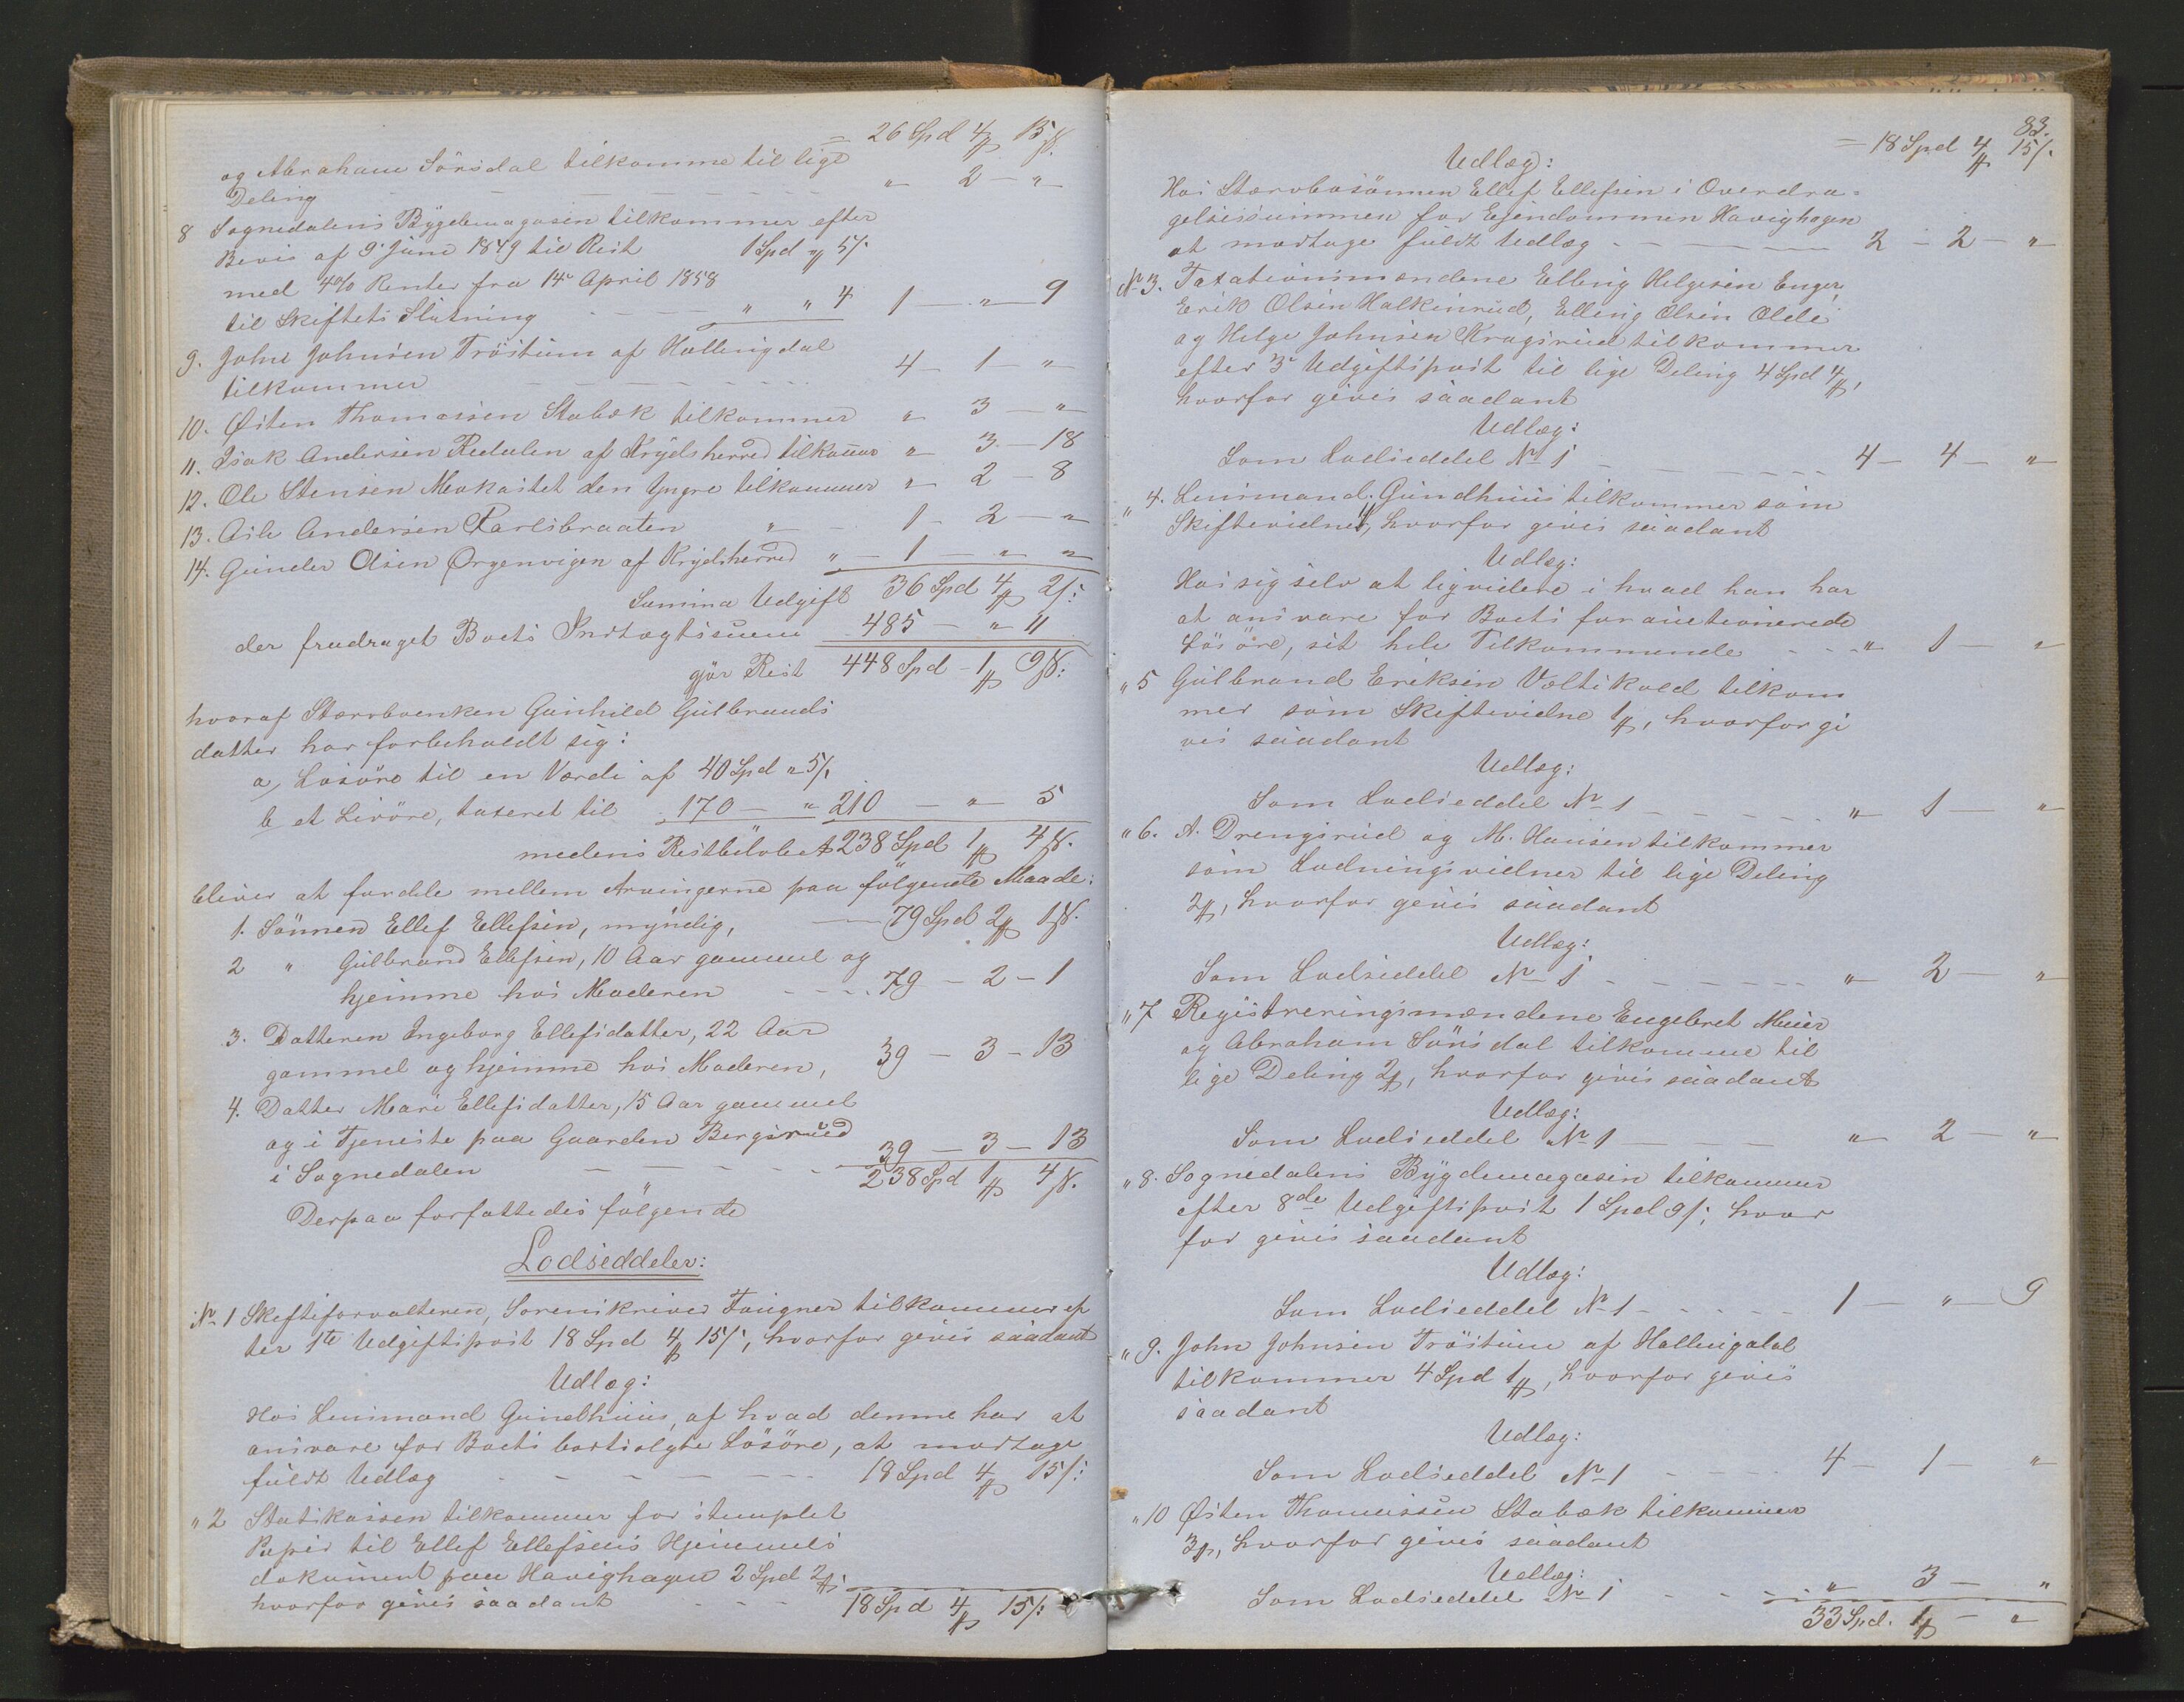 = 26 Spd 4 ₰ 15 β.
og Abraham Sörsdal tilkomme til lige
Deling - - - - - - „ 2 - „
8 Sognedalens Bygdemagasin tilkommer efter
Bevis af 9 Juni 1849 til Rest 1 Spd „ 5/.
med 4% Renter fra 14 April 1858
til Skiftets Slutning - - - „ „ 4 1 — „ — 9
9. John Johnsen Tröstum af Hallingdal
tilkommer - - - - - - 4 — 1 — „
10. Østen Thomassen Stabæk tilkommer „ 3 — „
11. Isak Andersen Redalen af Krydsherred tilkommer „ 3 — 18
12. Ole Stensen Mokastet den Yngre tilkommer „ 2 — 8
13. Asle Andersen Karlsbraaten „ — 1 — 2 — „
14. Gunder Olsen Ørgenvigen af Krydsherred „ — 1 — „ „
Summa Udgift 36 Spd 4 ₰ 2/:
der fradraget Boets Indtægtssum 485 — „ 11
gjör Rest 448 Spd - 1 ₰ 9 β:
hvoraf Stervboenken Gunhild Gulbrands
datter har forbeholdt sig:
a, Lösöre til en Værdi af 40 Spd „ 5/.
b et Livöre, taxeret til 170 — „ 210 — „ 5
medens Restbelöbet 238 Spd 1 ₰ 4 β.
bliver at fordele mellem Arvingerne paa fölgende Maade:
1. Sönnen Ellef Ellefsen, myndig, — 79 Spd 2 ₰ 1 β.
2 „ Gulbrand Ellefsen, 10 Aar gammel og
hjemme hos Moderen - - - 79 — 2 — 1
3. Datteren Ingeborg Ellefsdatter, 22 Aar
gammel og hjemme hos Moderen, 39 — 3 — 13
4. Datter Mari Ellefsdatter, 15 Aar gammel
og i Tjeneste paa Gaarden Bergsrud
i Sognedalen - - - - - 39 — 3 — 13
238 Spd 1 ₰ 4 β.
Derpaa forfattedes fölgende
Lodseddeler:
No 1 Skifteforvalteren, Sorenskriver Faugner tilkommer ef
ter 1ste Udgiftspost 18 Spd 4 ₰ 15/:, hvorfor gives saadant
Udlæg:
Hos Lensmand Gundhuus, af hvad denne har at
ansvare for Boets bortsolgte Lösöre, at modtage
fuldt Udlæg - - - - - - 18 Spd 4 ₰ 15/:
„ 2 Statskassen tilkommer for stemplet
Papir til Ellef Ellefsens Hjemmels
dokument paa Havighagen 2 Spd 2 ₰:
hvorfor gives saadant - - - 18 Spd 4 ₰ 15/:
83.
= 18 Spd 4 ₰ 15/.
Udlæg:
Hos Stervbosönnen Ellef Ellefsen i Overdra=
gelsessummen for Eiendommen Havighagen
at modtage fuldt Udlæg - - - 2 — 2 — „
No 3. Taxationsmændene Elling Helgesen Enger,
Erik Olsen Halkinrud, Elling Olsen Olde
og Helge Johnsen Kragsrud tilkommer
efter 3die Udgiftspost til lige Deling 4 Spd 4 ₰,
hvorfor gives saadant
Udlæg:
Som Lodseddel No 1 - - - - - 4 — 4 — „
„ 4. Lensmand Gundhuus tilkommer som
Skiftevidne 1 ₰, hvorfor gives saadant
Udlæg:
Hos sig selv at liqvidere i hvad han har
at ansvare for Boets forauctionerede
Lösöre, sit hele Tilkommende - - - „ 1 — „
„ 5 Gulbrand Eriksen Veltikold tilkom
mer som Skiftevidne 1 ₰, hvorfor gi
ves saadant
Udlæg:
Som Lodseddel No 1 - - - - - „ 1 — „
„ 6. A. Drengsrud og M. Hansen tilkommer
som Lodningsvidner til lige Deling
2 ₰, hvorfor gives saadant
Udlæg:
Som Lodseddel No 1 - - - - - „ 2 — „
„ 7 Registreringsmændene Engebret Meier
og Abraham Sörsdal tilkomme til
lige Deling 2 ₰, hvorfor gives saadant
Udlæg:
Som Lodseddel No 1 — — — „ 2 — „
„ 8. Sognedalens Bygdemagasin tilkommer
efter 8de Udgiftspost 1 Spd 9/:, hvor
for gives saadant
Udlæg:
Som Lodseddel No 1 - - - - - 1 — „ — 9
„ 9. John Johnsen Tröstum af Hallingdal
tilkommer 4 Spd 1 ₰, hvorfor gives
saadant
Udlæg:
Som Lodseddel No 1 - - - - 4 — 1 — „
„ 10 Østen Thomassen Stabæk tilkommer
3 ₰, hvorfor gives saadant
Udlæg:
Som Lodseddel No 1 - - - „ 3 — „
33 Spd. 1 ₰ — „